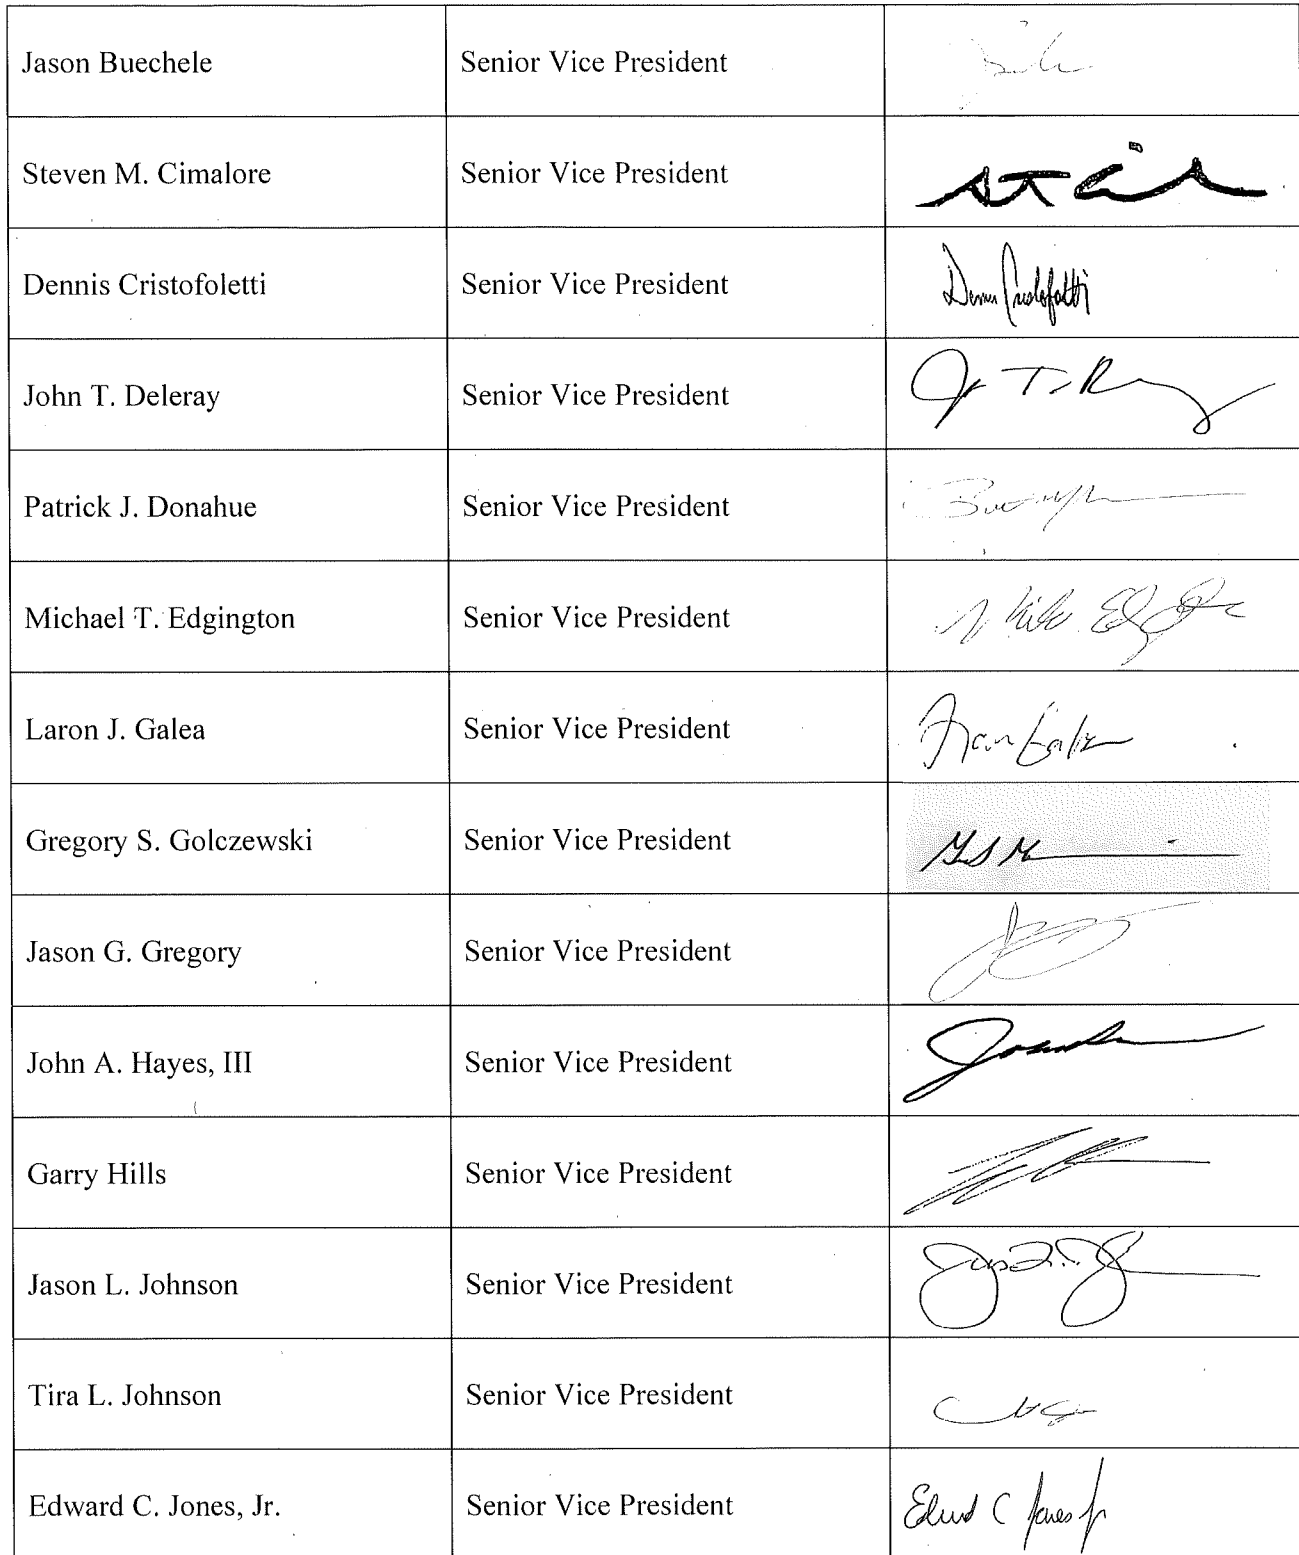 Jason Buechele Senior Vice President
Steven M. Cimalore Senior Vice President
Dennis Cristofoletti Senior Vice President
John T. Deleray Senior Vice President
Patrick J. Donahue Senior Vice President
Michael T. Edgington Senior Vice President
Laron J. Galea Senior Vice President
Gregory S. Golczewski Senior Vice President
Jason G. Gregory Senior Vice President
John A. Hayes, III Senior Vice President
Garry Hills Senior Vice President
Jason L. Johnson Senior Vice President
Tira L. Johnson Senior Vice President
Edward C. Jones, Jr. Senior Vice President Edward C Jones Jr